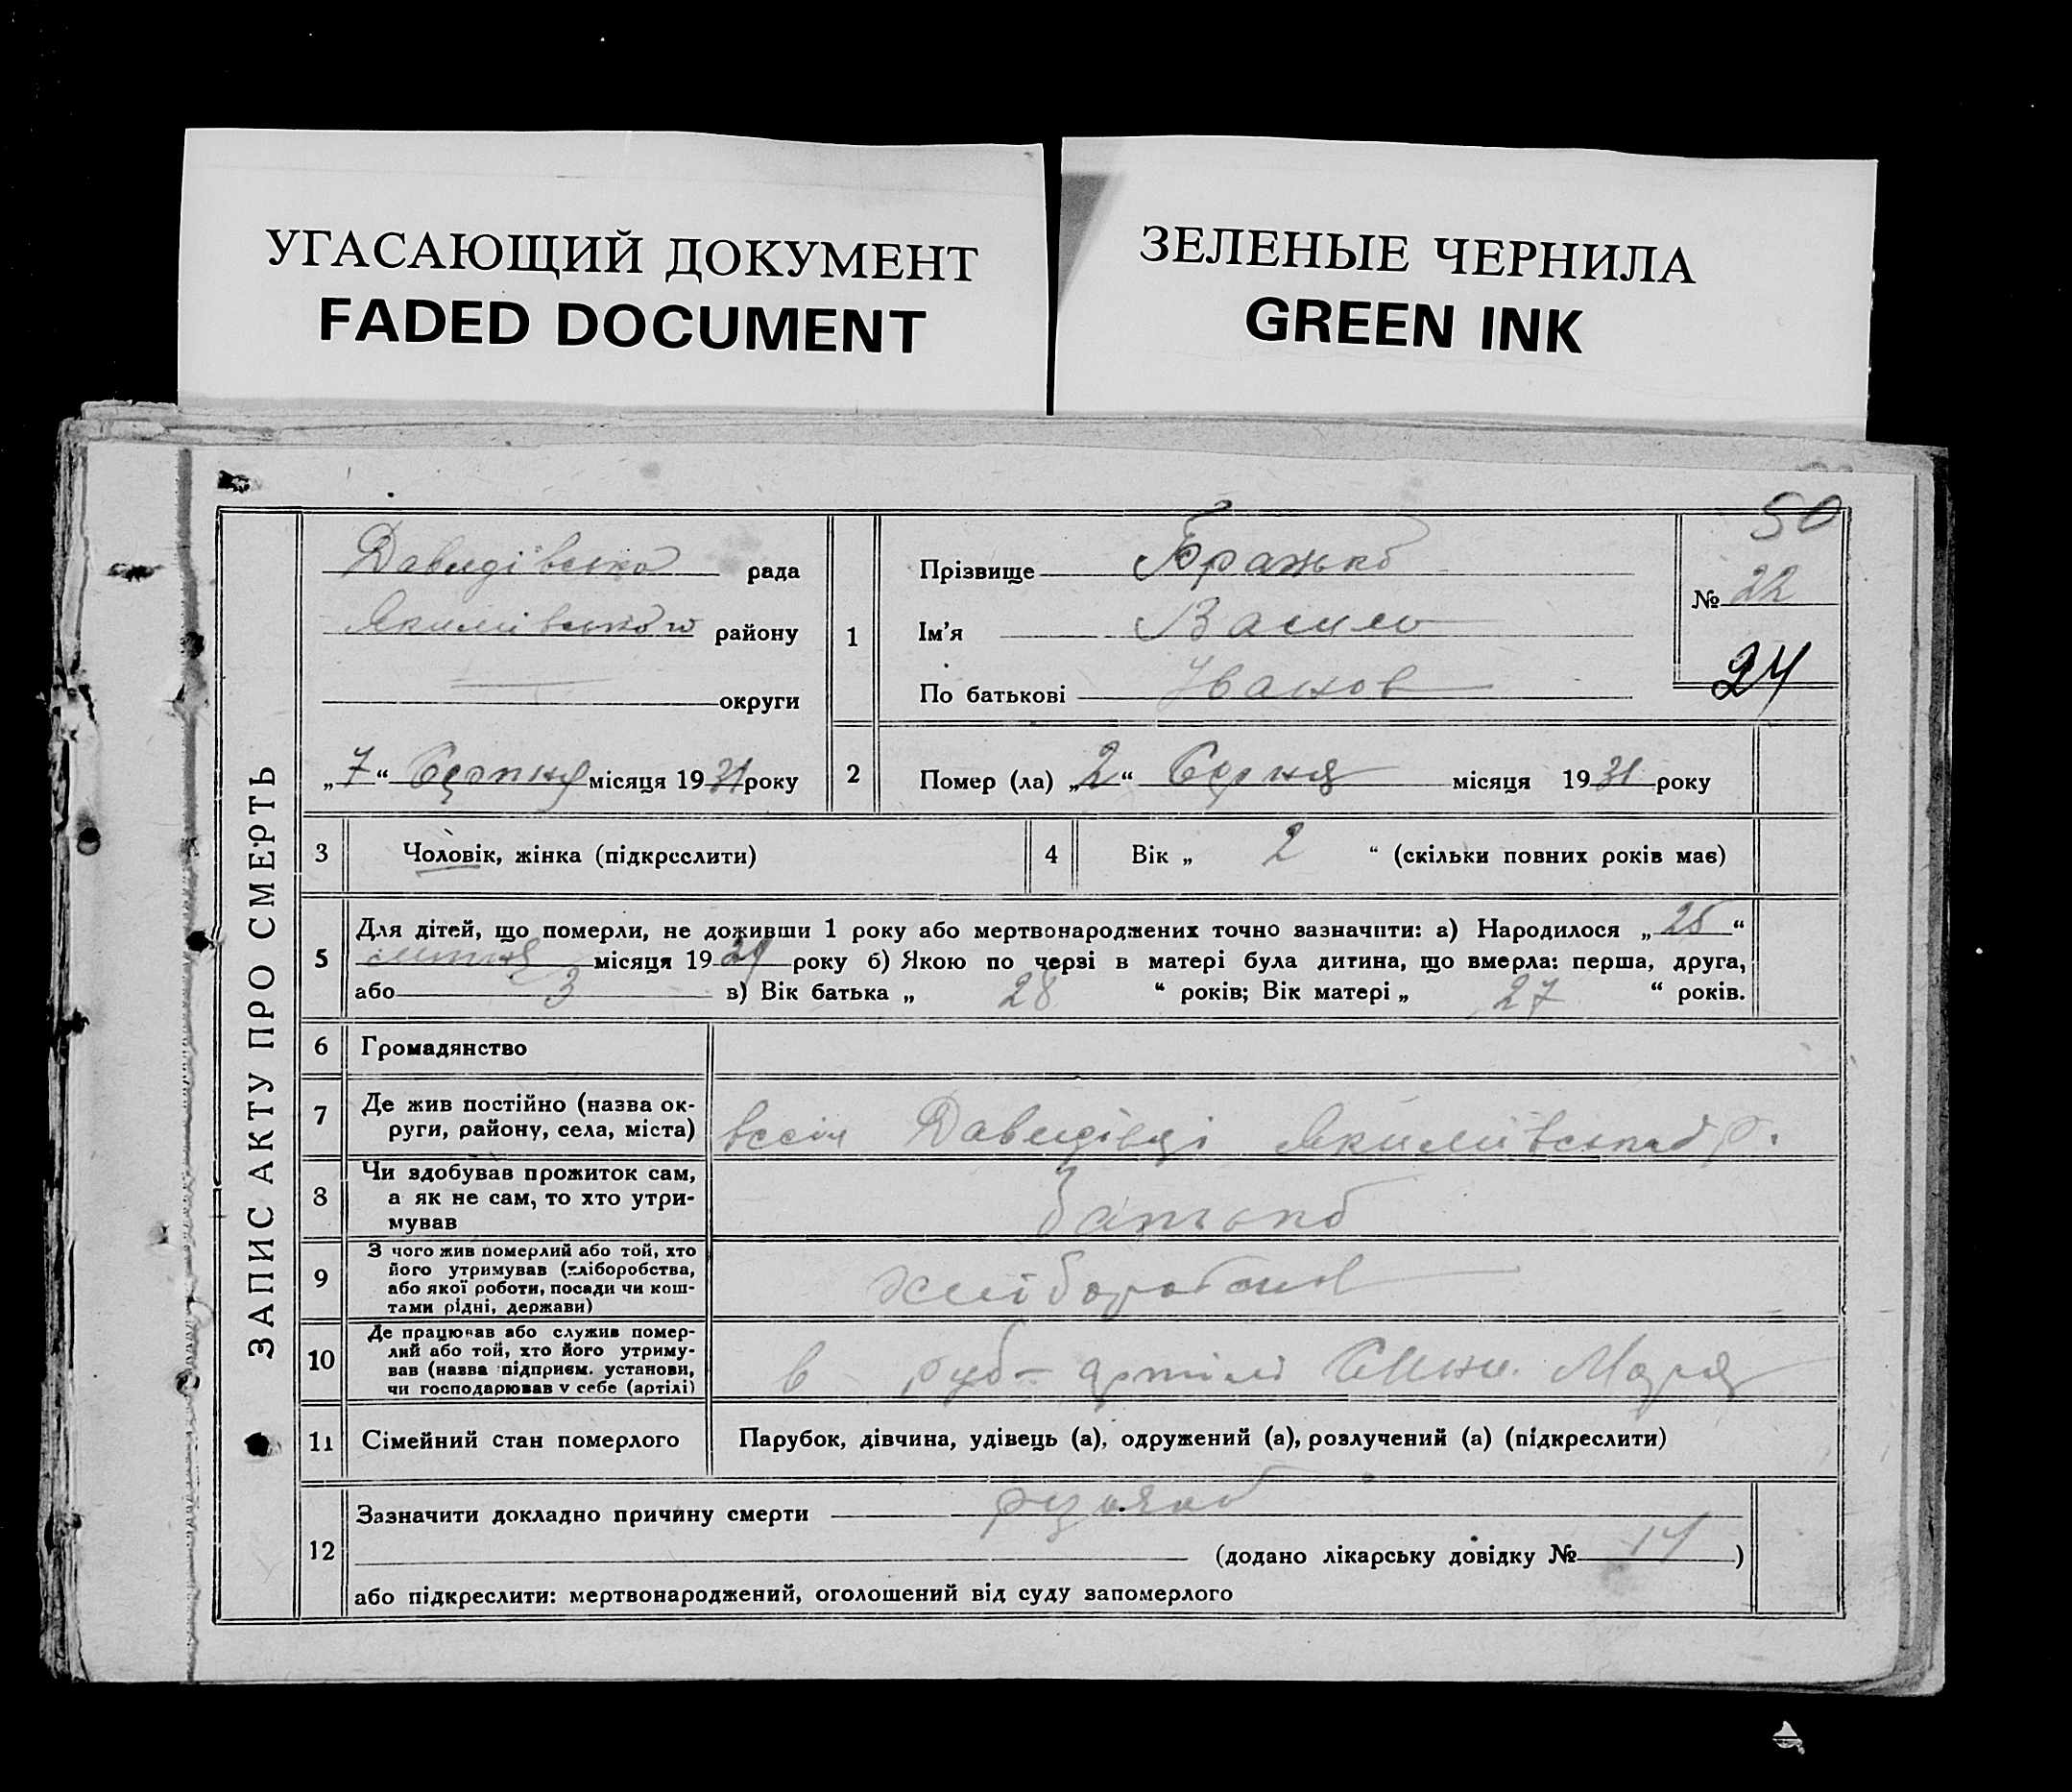 УГАСАЮЩИЙ ДОКУМЕНТ
FADED DOCUMENT
ЗЕЛЕНЫЕ ЧЕРНИЛА
GREEN INK
50
ЗАПИС АКТУ ПРО СМЕРТЬ
Давидівська рада
Якимівського району
округи
„7“ Серпня місяця 1931 року
1
Прізвище Бражко
Ім'я Василь
По батькові Іванов
№ 22
24
2
Помер (ла) „2“ Серня місяця 1931 року
3 Чоловік, жінка (підкреслити)
4 Вік „ 2 “ (скільки повних років має)
5 Для дітей, що померли, не доживши 1 року або мертвонароджених точно зазначити: а) Народилося „25“
липня місяця 1929 року б) Якою по черзі в матері була дитина, що вмерла: перша, друга,
або 3 в) Вік батька „ 28 “ років; Вік матері „ 27 “ років.
6 Громадянство
7 Де жив постійно (назва ок-
руги, району, села, міста)
Давидівці Якимівського р.
8 Чи здобував прожиток сам,
а як не сам, то хто утри-
мував
батько
9 З чого жив померлий або той, хто
його утримував (хліборобства,
або якої роботи, посади чи кош-
тами рідні, держави)
хліборобства
10 Де працював або служив помер-
лий або той, хто його утриму-
вав (назва підприєм. установи,
чи господарював у себе (артілі)
в артілі
11 Сімейний стан померлого
Парубок, дівчина, удівець (а), одружений (а), розлучений (а) (підкреслити)
12 Зазначити докладно причину смерти
(додано лікарську довідку № 14)
або підкреслити: мертвонароджений, оголошений від суду запомерлого